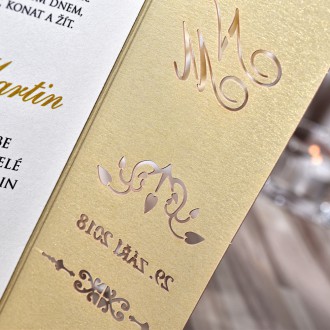 M DNEM.
, KONAT A ŽÍT.
Martin
BE
ELÉ
IN
M M
29. ZÁŘÍ 2018